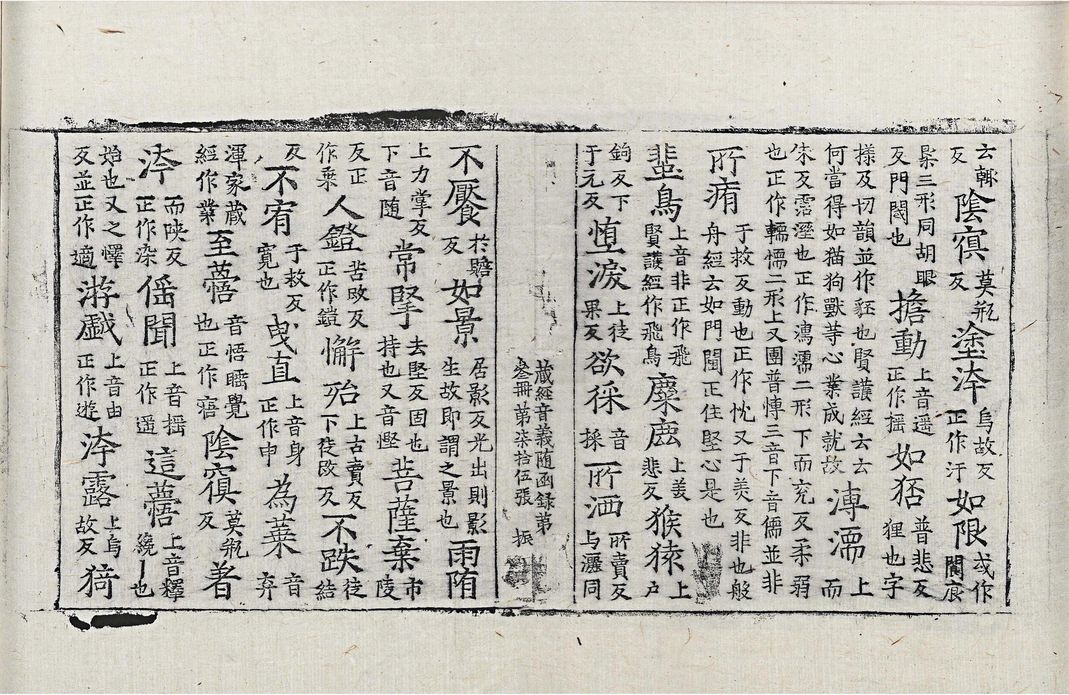 云鄊反 陰㝠 莫瓶反 塗洿 烏故反正作汙 如限 或作
三形同胡眼反門閾也 擔動 上音遥正作揺 如㹨 普悲反狸也字
樣及切韻並作豾也賢護經云去何當得如猫狗獸等心業成就故 溥濡 上而
朱反霑溼也正作濡二形下而兖反柔弱也正作轜懦二形上又團普慱三音下音儒並非
所痏 于救反動也正作忱又于美反非也般舟經云如門閫正住堅心是也
蜚鳥 上音非正作飛賢護經作飛鳥 麋鹿 上美悲反 猴猿 上户
鉤反下于元反 堕淚 上徒果反 欲採 音採 所洒 所賣反与灑同
藏經音義随函録第
叁冊第柒拾伍張 振
不饜 於贍反 如景 居影反光出則影生故即謂之景也 雨陏
上力掌反下音随 常掔 去堅反固也持也又音慳 菩薩棄 市陵
反正作乗 人鐙 苦改反正作鎧 懈殆 上古賣反下徒改反 不跌 徒結
反 不宥 于救反寛也 曳直 上音身正作申 為葉 音弃
渾家藏經作業 至𦾧 音悟睡覺也正作寤 陰㝠 莫瓶反 者
洿 而陝反正作染 偠聞 上音揺正作遥 這𦾧 上音釋繞丨也
始也又之懌反並正作適 游戲 上音由正作遊 洿露 上烏故反 猗